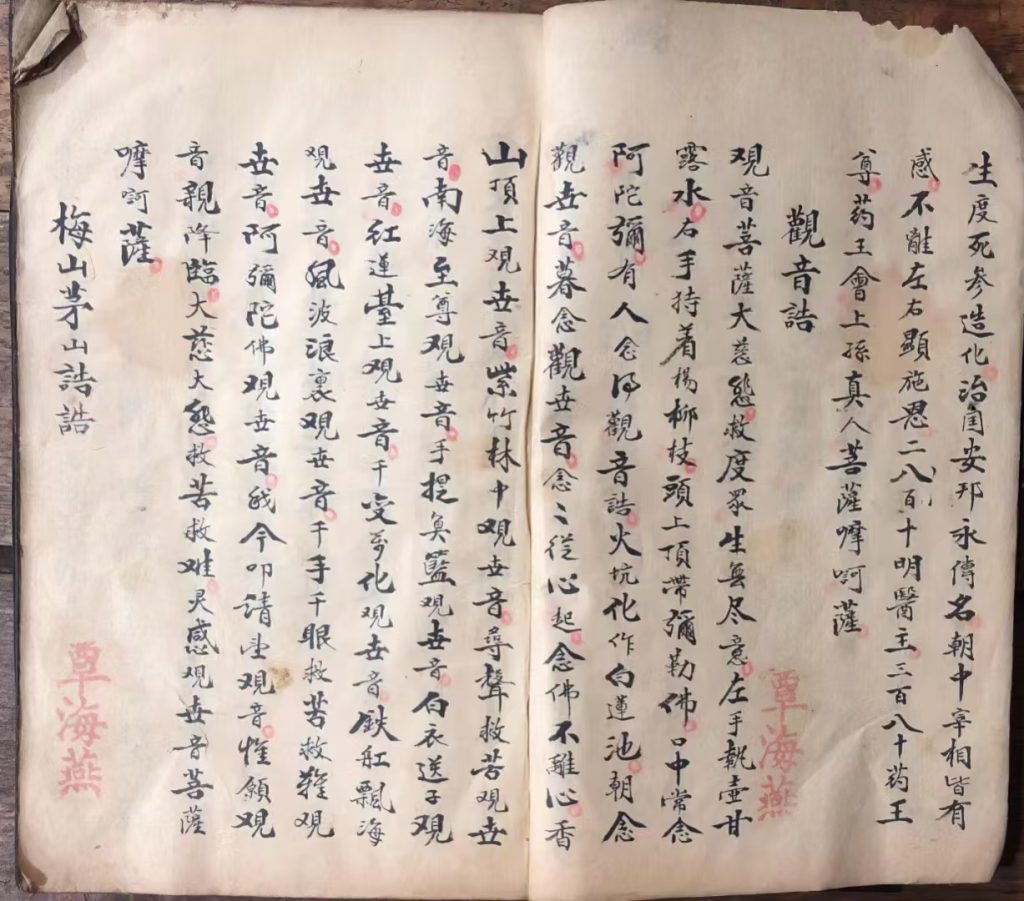 生度死参造化治国安邦永傳名朝中宰相皆有
感不離左右顯施恩二八百十明醫主三百八十药王
尊药王會上孫真人菩薩嚤呵薩
觀音誥
观音菩薩大慈悲救度眾生無尽意左手執壺甘
露水右手持着楊柳枝頭上頂帶彌勒佛口中常念
阿陀彌有人念得觀音誥火坑化作白蓮池朝念
觀世音暮念觀世音念〻從心起念佛不離心香
山頂上观世音紫竹林中观世音尋聲救苦观世
音南海至尊观世音手提魚籃观世音白衣送子观
世音红蓮臺上观世音千变万化观世音鉄缸飄海
观世音風波浪裏观世音千手千眼救苦救難观
世音阿彌陀佛观世音我今叩請聖观音惟願观
音親降臨大慈大悲救苦救难灵感观世音菩薩
嚤呵薩
梅山茅山誥誥
覃海燕
覃海燕